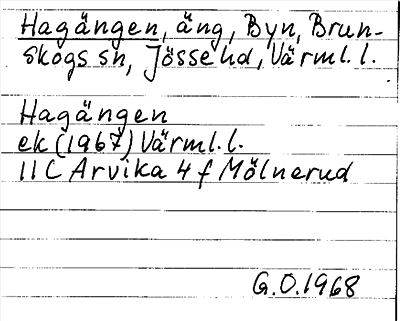 Hagängen, äng, Byn, Brun-
skogs sn, Jösse hd, Värml. l.
Hagängen
ek (1967) Värml. l.
11 C Arvika 4 f Mölnerud
G.O. 1968